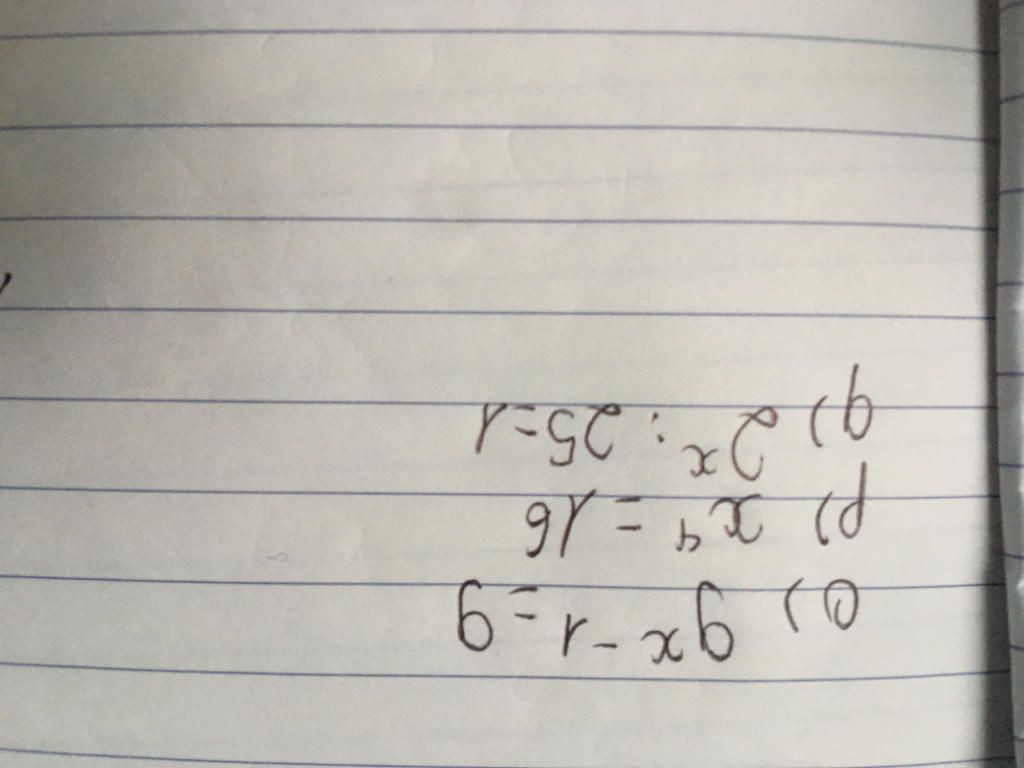 o) 9ˣ⁻¹ = 9
p) x⁴ = 16
q) 2ˣ : 25 = 1